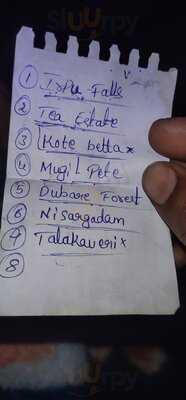 ① Irpu Falls
② Tea Estate
③ Kote betta x
④ Mugil Pete
⑤ Dubare Forest
⑥ Nisargadam
⑦ Talakaveri x
⑧